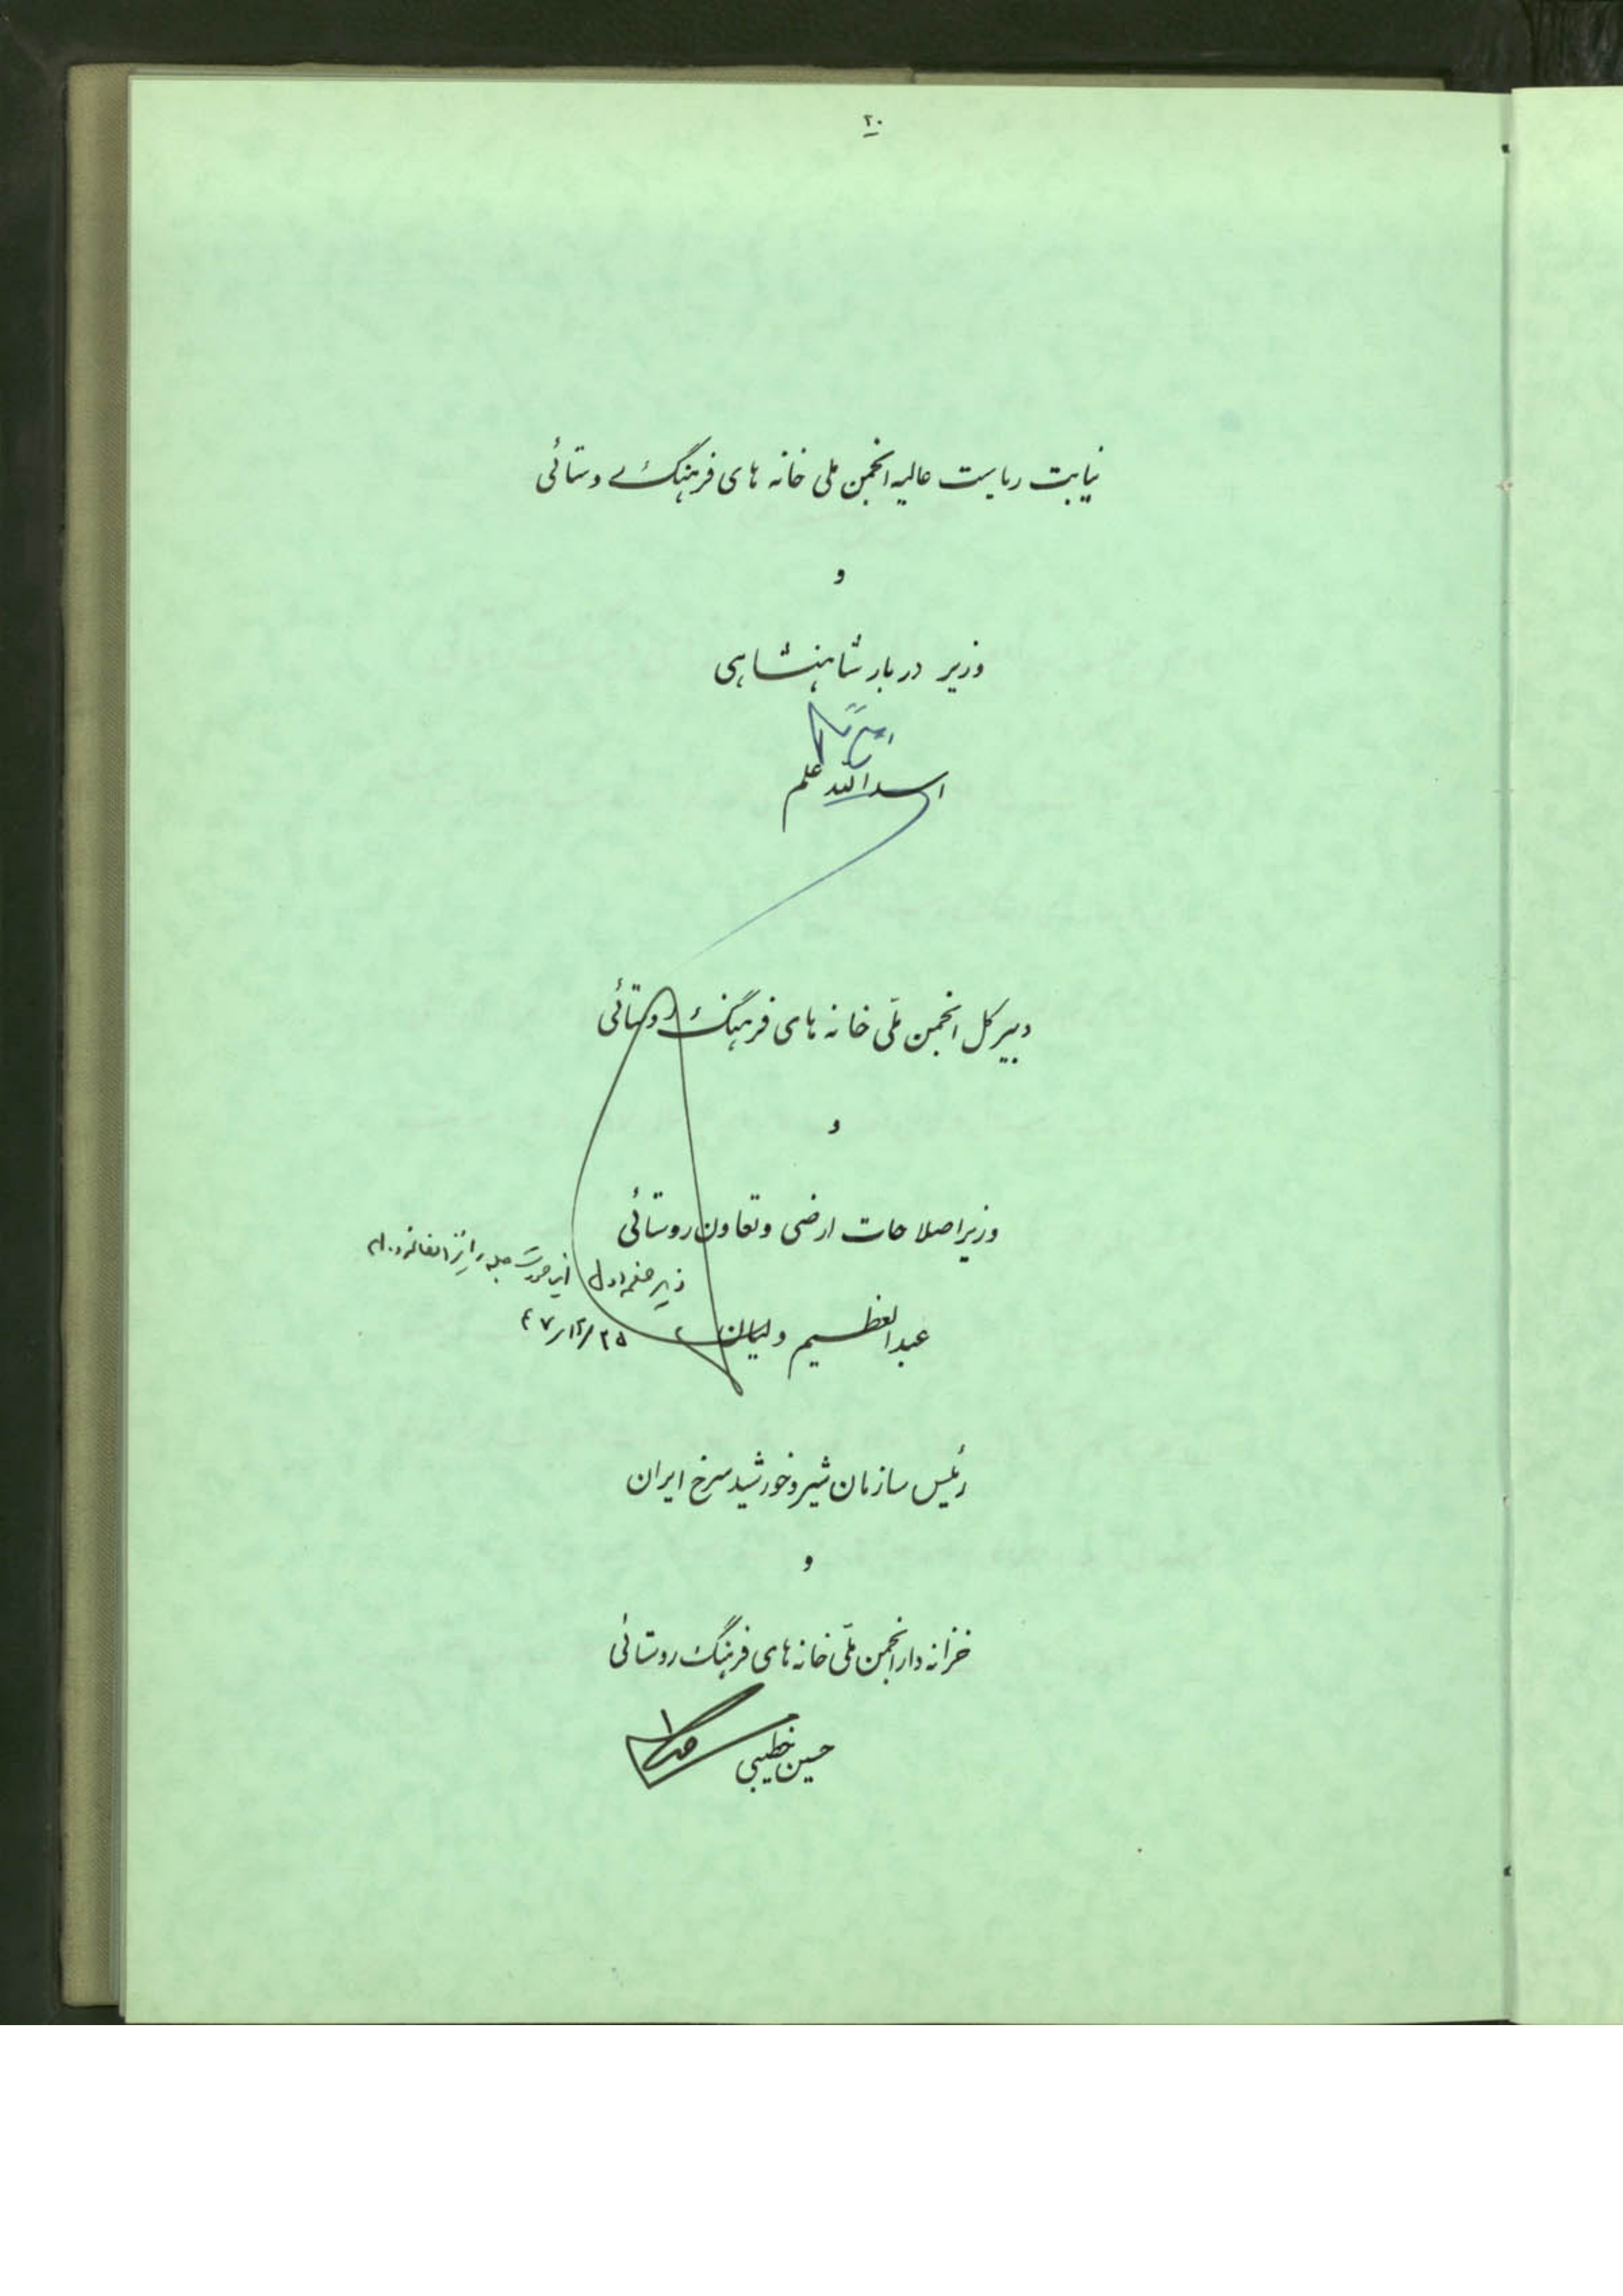 ۲۰
نیابت ریاست عالیه انجمن ملی خانه های فرهنگ روستائی
و
وزیر دربار شاهنشاهی
اسدالله علم
دبیر کل انجمن ملّی خانه های فرهنگ روستائی
و
وزیر اصلاحات ارضی و تعاون روستائی
زیر صفحه اول این صورت جلسه را نیز امضا نموده‌ام
عبدالعظیم ولیان
۴۷/۱۲/۲۵
رئیس سازمان شیر و خورشید سرخ ایران
و
خزانه دار انجمن ملّی خانه های فرهنگ روستائی
حسین خطیبی